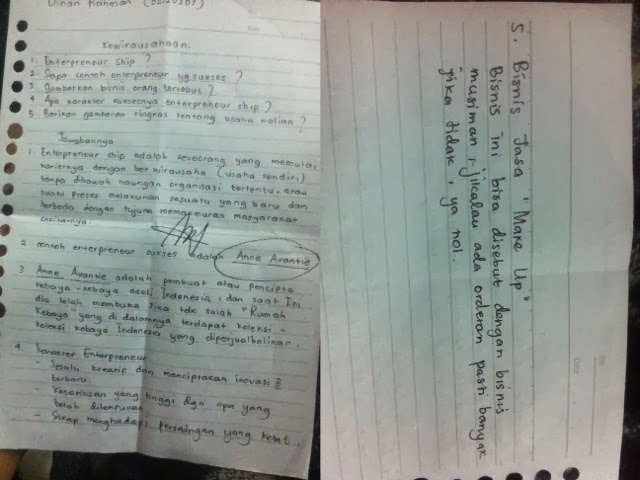 Dinan Rahman
Kewirausahaan.
1. Enterpreneur ship ?
2. Siapa contoh enterpreneur yg sukses ?
3. Gambarkan bisnis orang tersebut ?
4. Apa karakter suksesnya enterpreneur ship ?
5. Berikan gambaran ringkas tentang usaha kalian ?
Jawabannya
1. Enterpreneur ship adalah seseorang yang memulai
kariernya dengan berwirausaha (usaha sendiri)
tanpa dibawah naungan organisasi tertentu, atau
suatu proses melakukan sesuatu yang baru dan
berbeda dengan tujuan memakmuran masyarakat
sekitarnya.
2. contoh enterpreneur sukses adalah Anne Avantie
3. Anne Avantie adalah pembuat atau pencipta
kebaya-kebaya asli Indonesia, dan saat ini
dia telah membuka "Rumah
Kebaya" yang di dalamnya terdapat koleksi-
koleksi kebaya Indonesia yang diperjualbelikan.
4. Karakter Enterpreneur
- Selalu kreatif dan menciptakan inovasi2
terbaru.
- Keseriusan yang tinggi dgn apa yang
telah ditekuni
- Sikap menghadapi persaingan yang ketat.
5. Bisnis Jasa "Make Up"
Bisnis ini bisa disebut dengan bisnis
musiman, jikalau ada orderan pasti banyak
jika tidak, ya nol.
No
Date